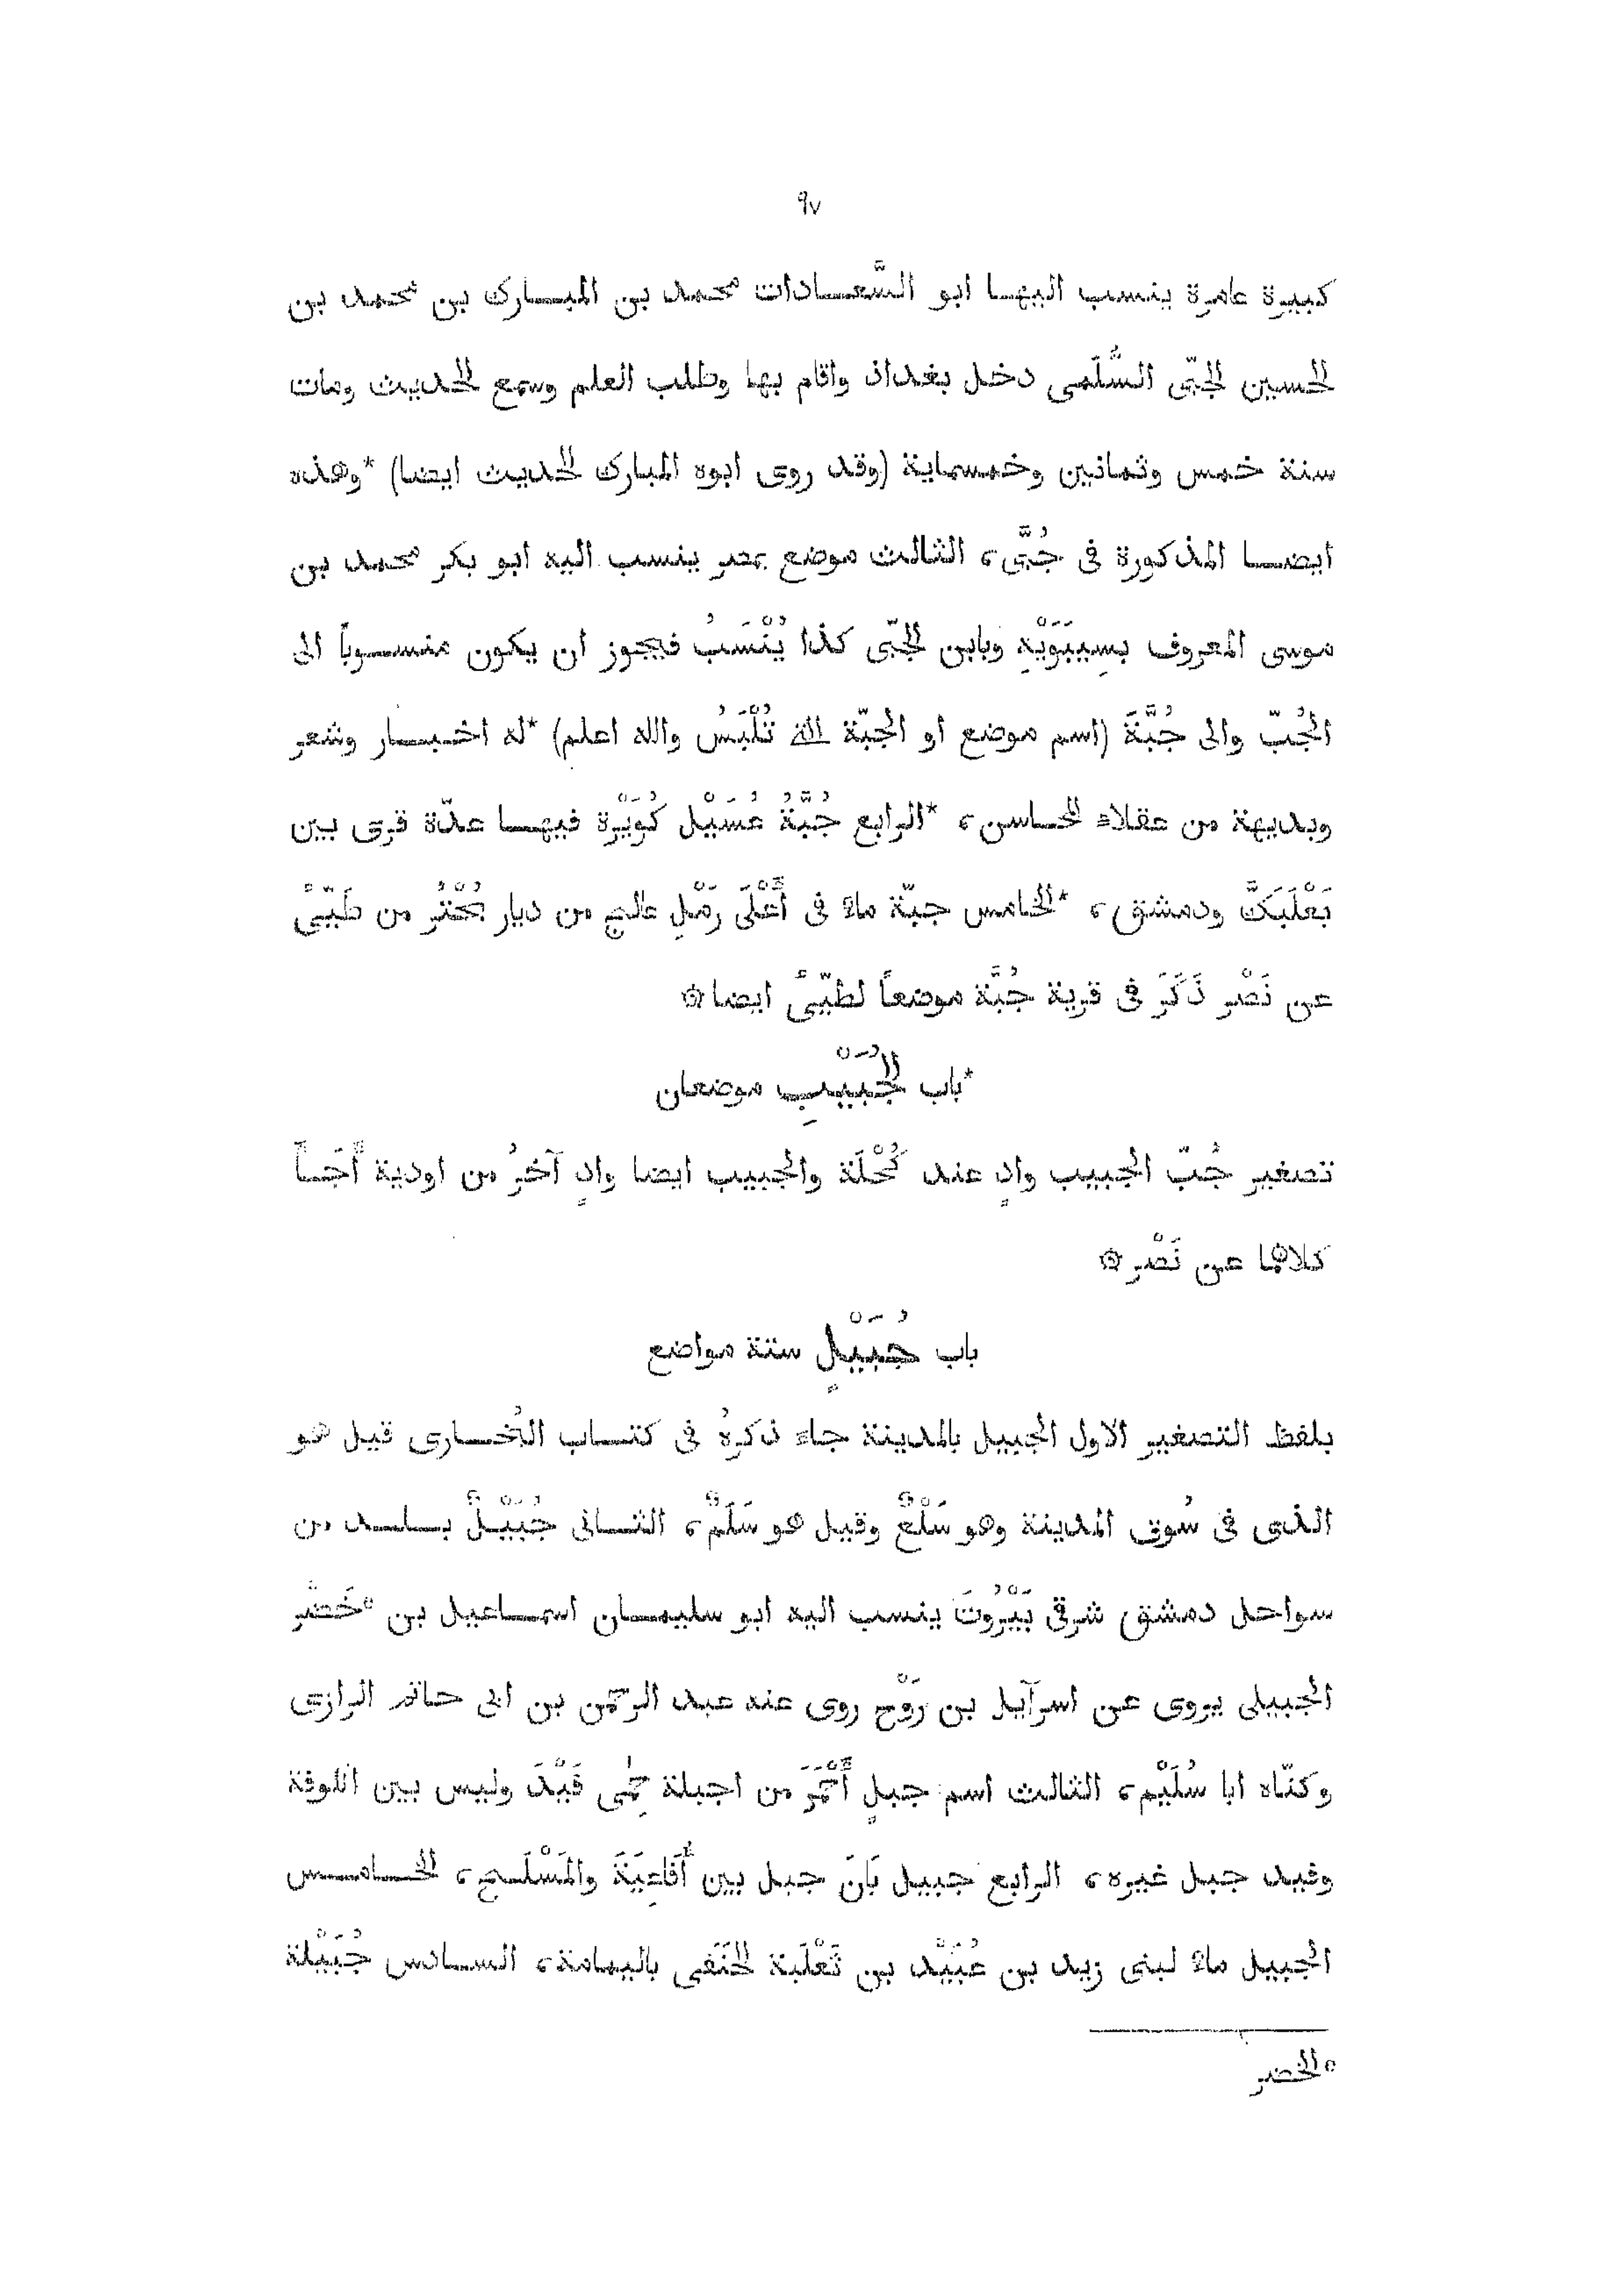 ٩٧
كبيرة عامرة ينسب اليها ابو السَّعادات محمد بن المبارك بن محمد بن
الحسين الجبّى السُّلَمى دخل بغداد واقام بها وطلب العلم وسمع الحديث ومات
سنة خمس وثمانين وخمسماية (وقد روى ابوه المبارك الحديث ايضا) *وهذه
ايضا المذكورة فى جُبَّى، الثالث موضع بمصر ينسب اليه ابو بكر محمد بن
موسى المعروف بسِيبَوَيْهِ وبابن الجبّى كذا يُنْسَبُ فيجوز ان يكون منسوباً الى
الجُبّ والى جُبَّةَ (اسم موضع او الجبّة التى تُلْبَسُ والله اعلم) *له اخبار وشعر
وبديهة من عقلاء المحاسن، *الرابع جُبَّةُ عُسَيْل كُوَيْرة فيها عدّة قرى بين
بَعْلَبَكَّ ودمشق، *الخامس جبّة ماء فى أَعْلَى رَمْلِ عالج من ديار بُحْتُر من طَيّىءٍ
عن نَصْر ذَكَرَ فى قرية جُبَّة موضعاً لطيّىء ايضا۞
*باب الجُبَيْبِ موضعان
تصغير جُبّ الجبيب وادٍ عند كُحْلَة والجبيب ايضا وادٍ آخرُ من اودية أَجَأَ
كلاهما عن نَصْر۞
باب جُبَيْلٍ ستة مواضع
بلفظ التصغير الاول الجبيل بالمدينة جاء ذكرهُ فى كتاب البُخارى قيل هو
الذى فى سُوق المدينة وهو سَلْعٌ وقيل هو سَلَمٌ، الثانى جُبَيْلٌ بلد من
سواحل دمشق شرقى بَيْرُوتَ ينسب اليه ابو سليمان اسماعيل بن °خَضْر
الجبيلى يروى عن اسرآيل بن رَوْح روى عنه عبد الرحمن بن ابى حاتم الرازى
وكنّاه ابا سُلَيْم، الثالث اسم جبلٍ أَحْمَرَ من اجبلة حِمَى فَيْدَ وليس بين الكوفة
وفيد جبل غيره، الرابع جبيل بَانَ جبل بين أَفَاعِيَةَ والمَسْلَح، الخامس
الجبيل ماء لبنى زيد بن عُبَيْد بن ثَعْلَبة الحَنَفى باليمامة، السادس جُبَيْلة
°الخضر